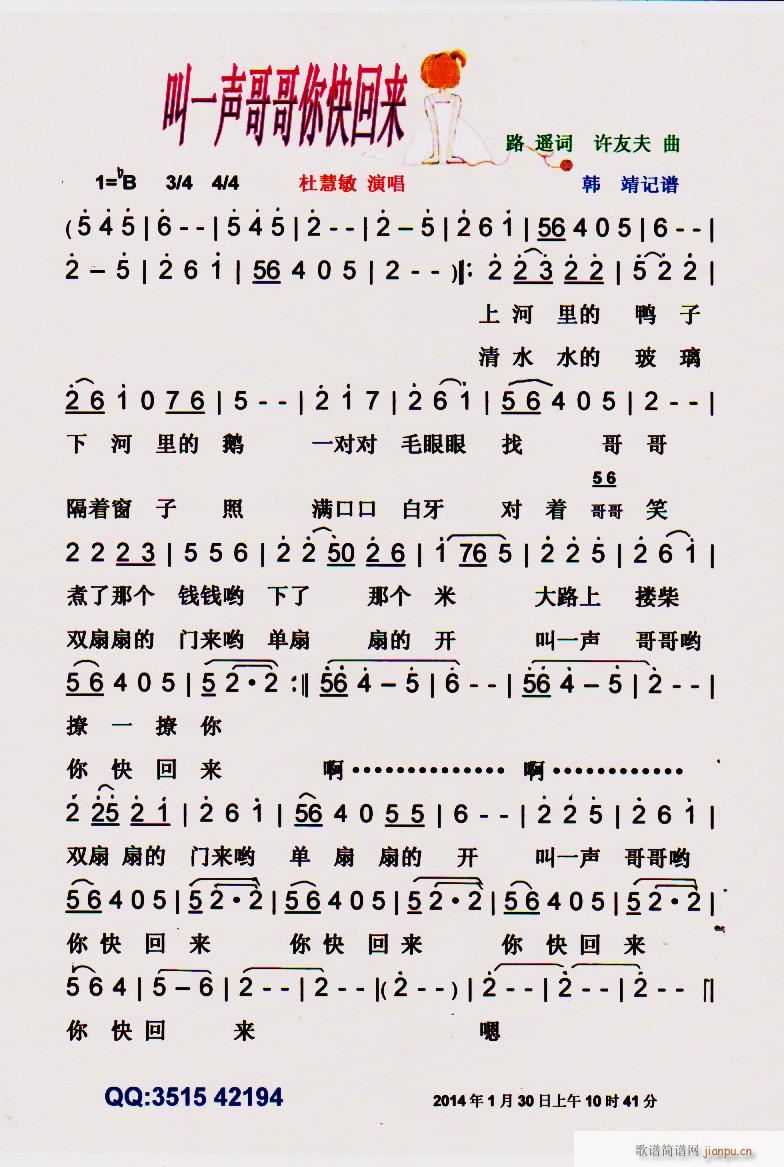 叫一声哥哥你快回来
路 遥词 许友夫 曲
1=bB 3/4 4/4 杜慧敏 演唱 韩 靖记谱
( 5 4 5 | 6 - - | 5 4 5 | 2 - - | 2 – 5 | 2 6 1 | 56 4 0 5 | 6 - - |
2 – 5 | 2 6 1 | 56 4 0 5 | 2 - - ) |: 2 2 3 2 2 | 5 2 2 |
上 河 里的 鸭 子
清 水 水的 玻 璃
2 6 1 0 7 6 | 5 - - | 2 1 7 | 2 6 1 | 5 6 4 0 5 | 2 - - |
下 河 里的 鹅 一对对 毛眼眼 找 哥 哥
5 6
隔着窗 子 照 满口口 白牙 对 着 哥哥 笑
2 2 2 3 | 5 5 6 | 2 2 50 2 6 | 1 76 5 | 2 2 5 | 2 6 1 |
煮了那个 钱钱哟 下了 那个 米 大路上 搂柴
双扇扇的 门来哟 单扇 扇的 开 叫一声 哥哥哟
5 6 4 0 5 | 5 2 · 2 :‖ 56 4 – 5 | 6 - - | 56 4 – 5 | 2 - - |
撩 一 撩 你
你 快 回 来 啊 ·············· 啊 ············
2 25 2 1 | 2 6 1 | 56 4 0 5 5 | 6 - - | 2 2 5 | 2 6 1 |
双扇 扇的 门来哟 单 扇 扇的 开 叫一声 哥哥哟
5 6 4 0 5 | 5 2 · 2 | 56 4 0 5 | 5 2 · 2 | 56 4 0 5 | 5 2 · 2 |
你 快 回 来 你 快 回 来 你 快 回 来
5 6 4 | 5 – 6 | 2 - - | 2 - - | ( 2 - - ) | 2 - - | 2 - - | 2 - - ‖
你 快 回 来 嗯
QQ:3515 42194 2014 年 1 月 30 日上午 10 时 41 分
歌谱简谱网 jianpu.cn